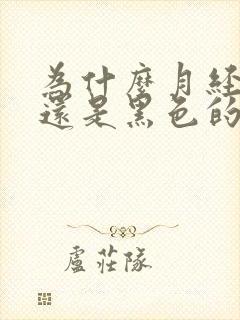 為什麼月經
還是黑色的
盧莊隊